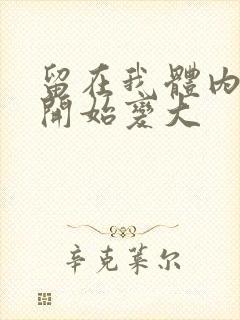 留在我體内
開始變大
辛克莱尔